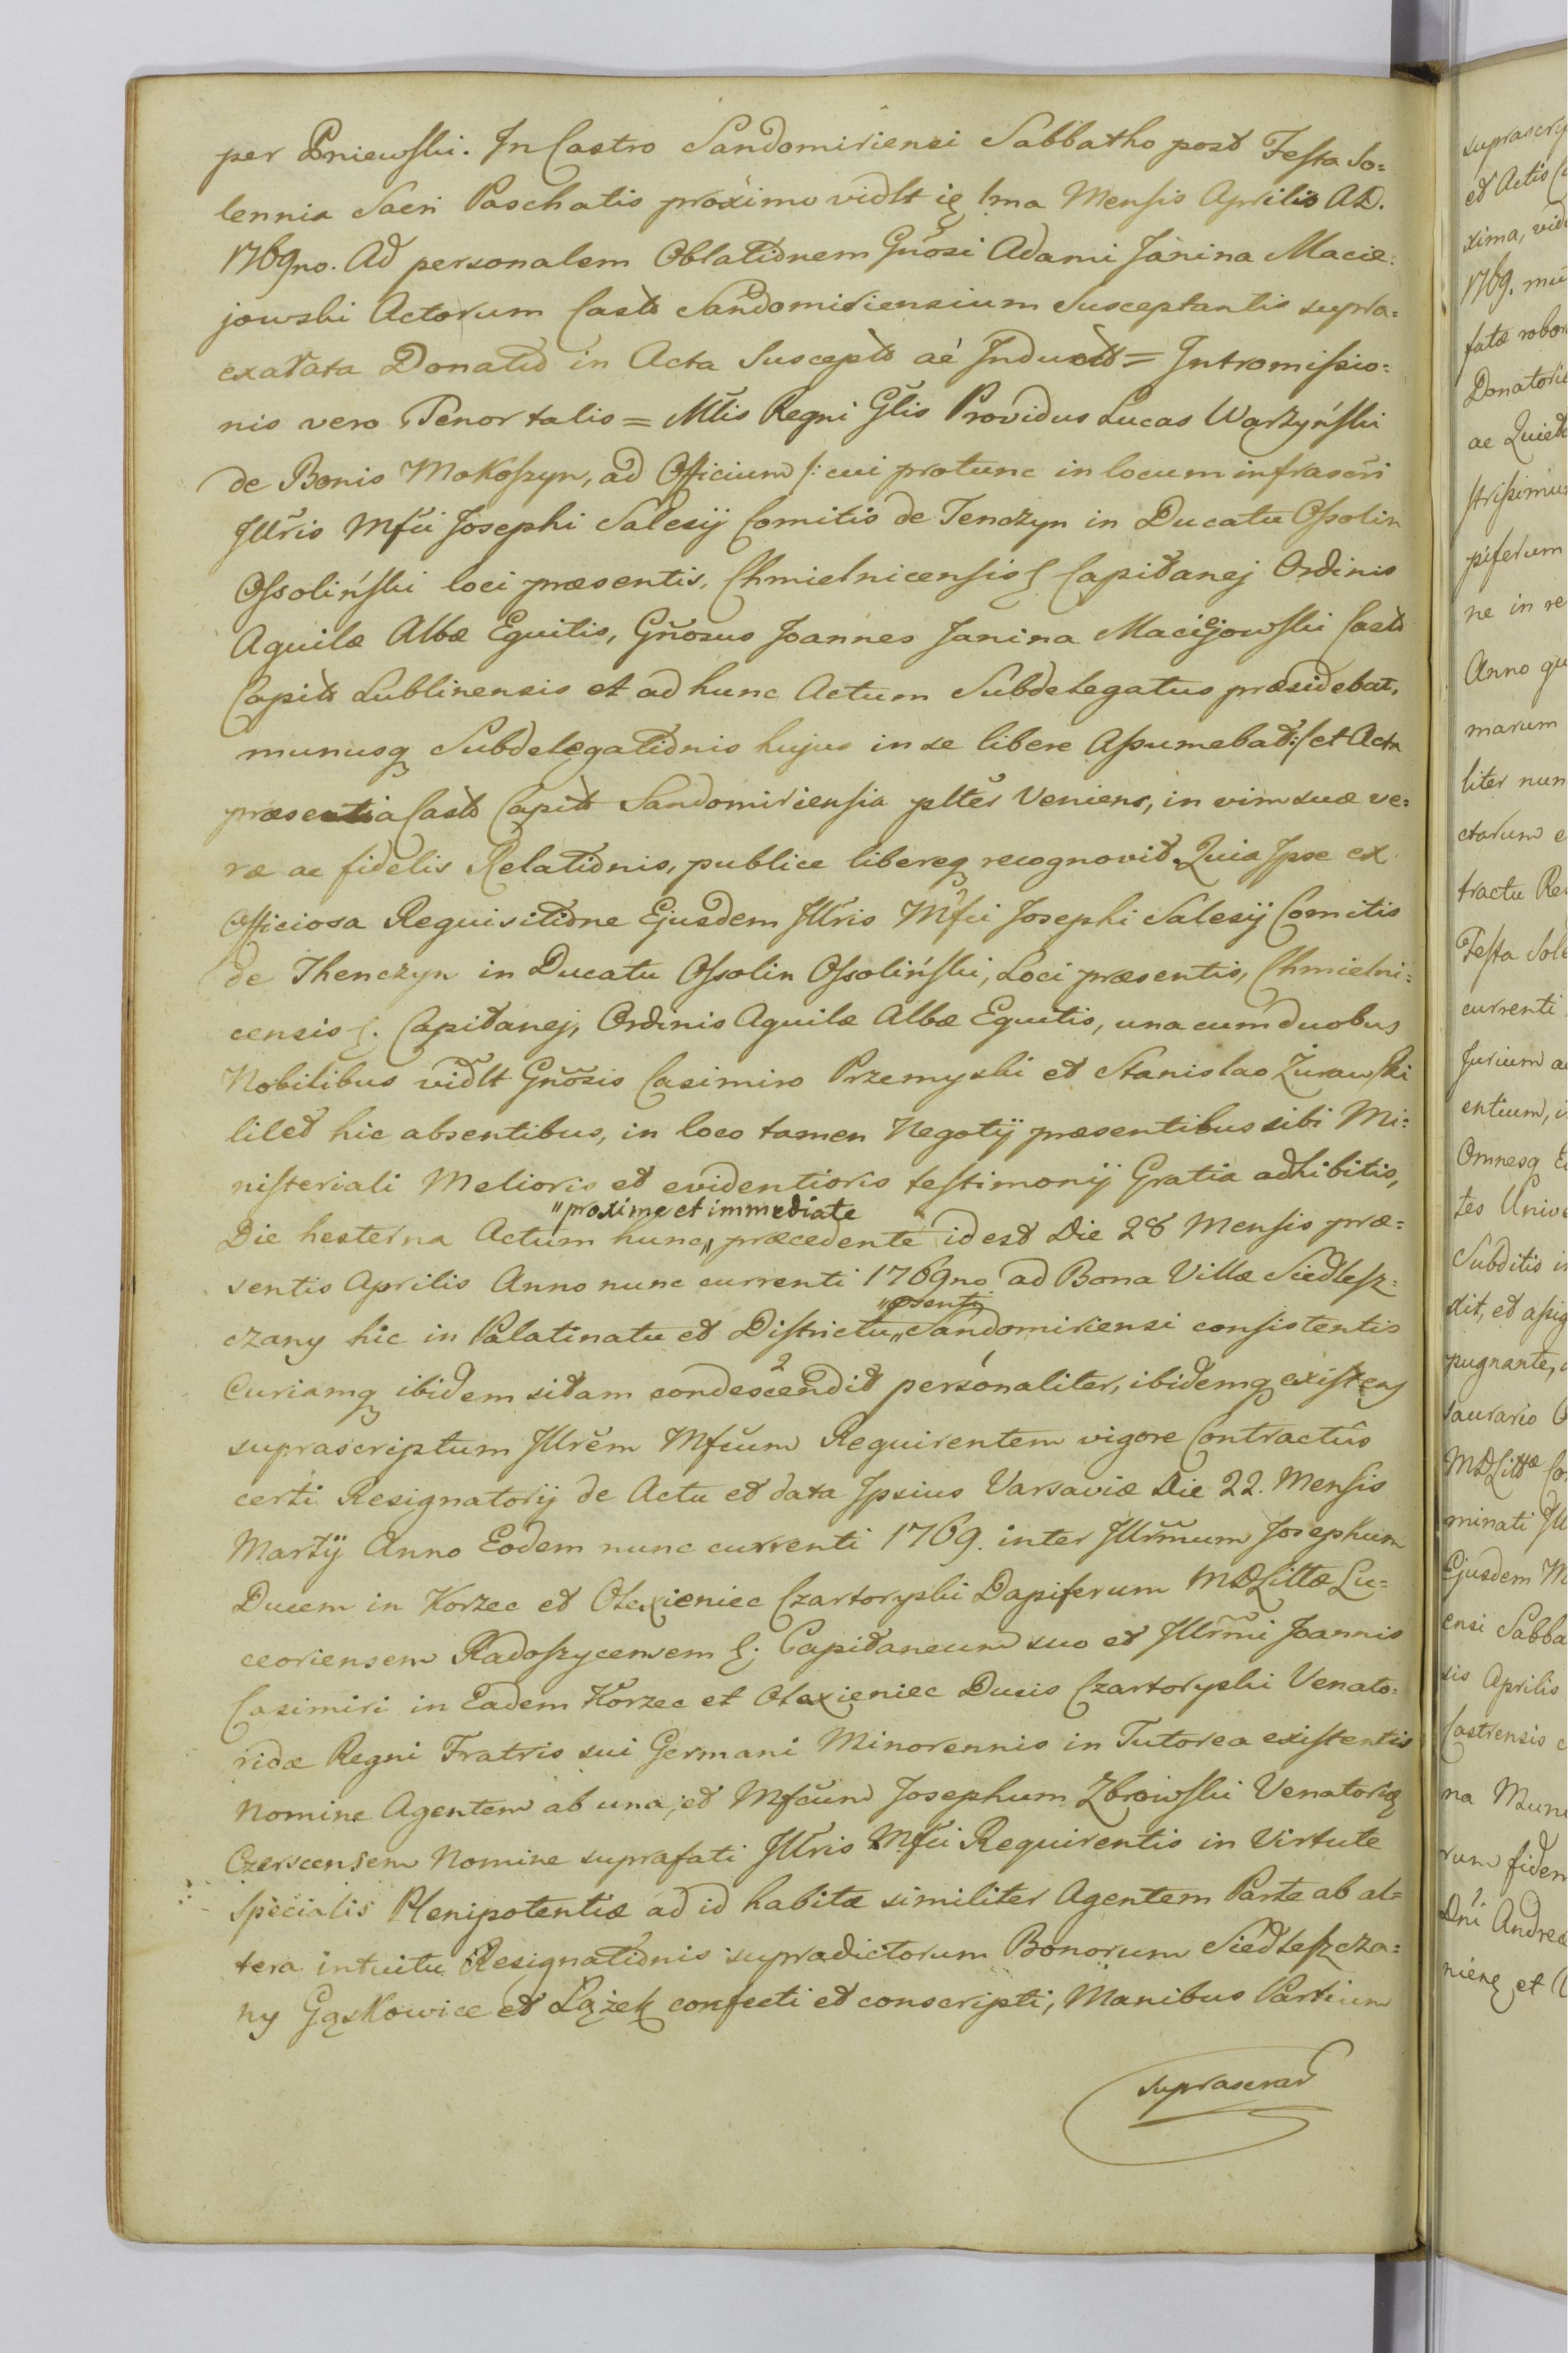 per Pniewski. In Castro Sandomiriensi Sabbatho post Festa So=
lennia Sacri Paschatis proximo vidlt 1ma Mensis Aprilis AD.
1769no. Ad personalem Oblationem Gnosi Adami Janina Macie=
jowski Actorum Castr Sandomiriensium Susceptantis supra=
exarata Donatio in Acta Suscepta ac Inducta = Intromissio=
nis vero Tenor talis = Mtlis Regni Glis Providus Lucas Warzyński
de Bonis Mokoszyn, ad Officium /: cui protunc in locum infrascri
Illris Mfci Josephi Salesij Comitis de Tenczyn in Ducatu Ossolin
Ossoliński loci præsentis, Chmielnicensis Capitanej Ordinis
Aquilæ Albæ Equitis, Gnosus Joannes Janina Maciejowski Castr
Capit Lublinensis et ad hunc Actum Subdelegatus præsidebat,
munusq Subdelegationis hujus in se libere Assumebat :/ et Acta
præsentia Castr Capit Sandomiriensia plter Veniens, in vim suæ ve=
ræ ac fidelis Relationis, publice libereq recognovit Quia Ipse ex
Officiosa Requisitione Ejusdem Illris Mfci Josephi Salesij Comitis
de Thenczyn in Ducatu Ossolin Ossoliński, Loci præsentis, Chmielni=
censis Capitanej, Ordinis Aquilæ Albæ Equitis, una cum duobus
Nobilibus vidlt Gnosis Casimiro Przemyski et Stanislao Żurawski
licet hic absentibus, in loco tamen Negotij præsentibus sibi Mi=
nisteriali Melioris et evidentioris testimonij Gratia adhibitis,
"proxime et immediate
Die hesterna Actum hunc" præcedente id est Die 28 Mensis præ=
sentis Aprilis Anno nunc currenti 1769no ad Bona Villæ Siedlesz=
czany hic in Palatinatu et Districtu" Sandomiriensi consistentis
Curiamq ibidem sitam condescendit personaliter, ibidemq existens
suprascriptum Illrem Mfcum Requirentem vigore Contractûs
certi Resignatorij de Actu et data Ipsius Varsaviæ Die 22. Mensis
Martij Anno Eodem nunc currenti 1769. inter Illrmum Josephum
Ducem in Korzec et Olexieniec Czartoryski Dapiferum MDLittæ Lu=
ceoriensem Radoszycensem Capitaneum suo et Illrmi Joannis
Casimiri in Eadem Korzec et Olexieniec Ducis Czartoryski Venato=
ridæ Regni Fratris sui Germani Minorennis in Tutorea existentis
Nomine Agentem ab una, et Mfcum Josephum Zbrowski
Czerscensem Nomine suprafati Illris Mfci Requirentis in Virtute
specialis Plenipotentiæ ad id habitæ similiter Agentem Parte ab al=
tera intuitu Resignationis supradictorum Bonorum Siedleszcza=
ny Gąskowice et Lążek confecti et conscripti, Manibus Partium